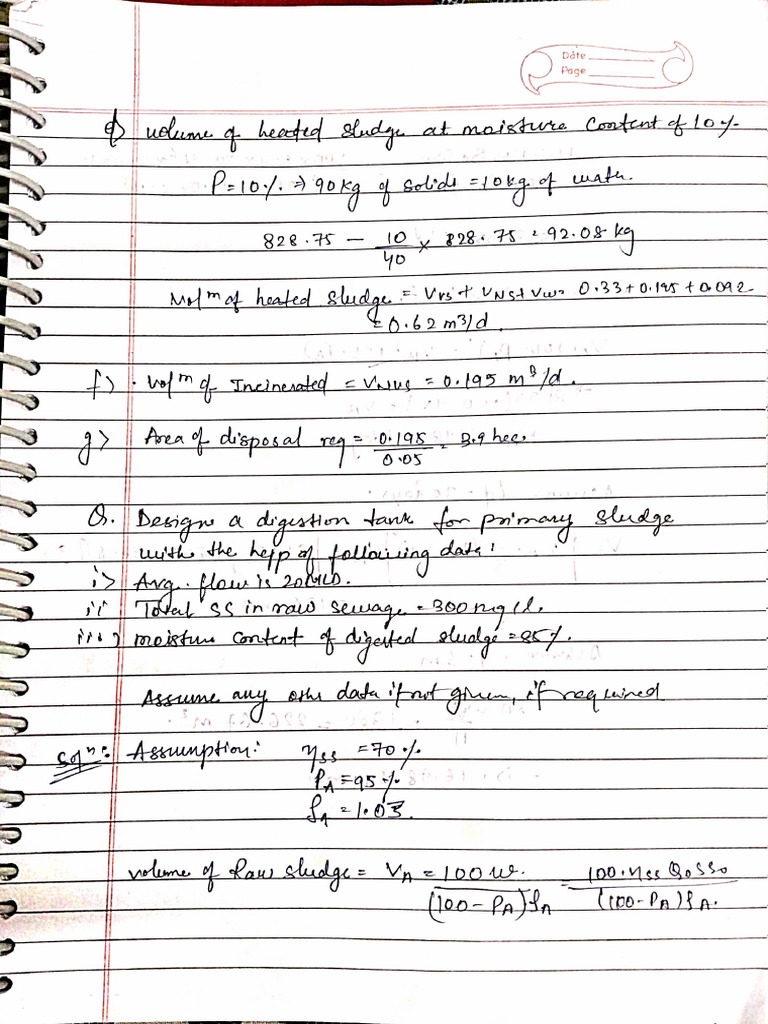 Date
Page
e) volume of heated sludge at moisture content of 10%
P=10% ⇒ 90kg of solids = 10kg of water.
828.75 — 10/40 × 828.75 = 92.08 kg
Volᵐ of heated sludge = Vvs + VNS + Vw = 0.33+0.195+0.092
= 0.62 m³/d.
f) Volᵐ of Incinerated = VNVS = 0.195 m³/d.
g) Area of disposal req = 0.195/0.05 = 3.9 hec.
Q. Design a digestion tank for primary sludge
with the help of following data:
i) Avg. flow is 20MLD.
ii Total SS in raw sewage = 300 mg/l.
iii) moisture content of digested sludge = 85%.
Assume any other data if not given, if required
Solⁿ: Assumption: ηss = 70%
PA = 95%
ρA = 1.03.
volume of Raw sludge = VA = 100 w./(100-PA)ρA = 100.ηss Q0 SS0/(100-PA)ρA.